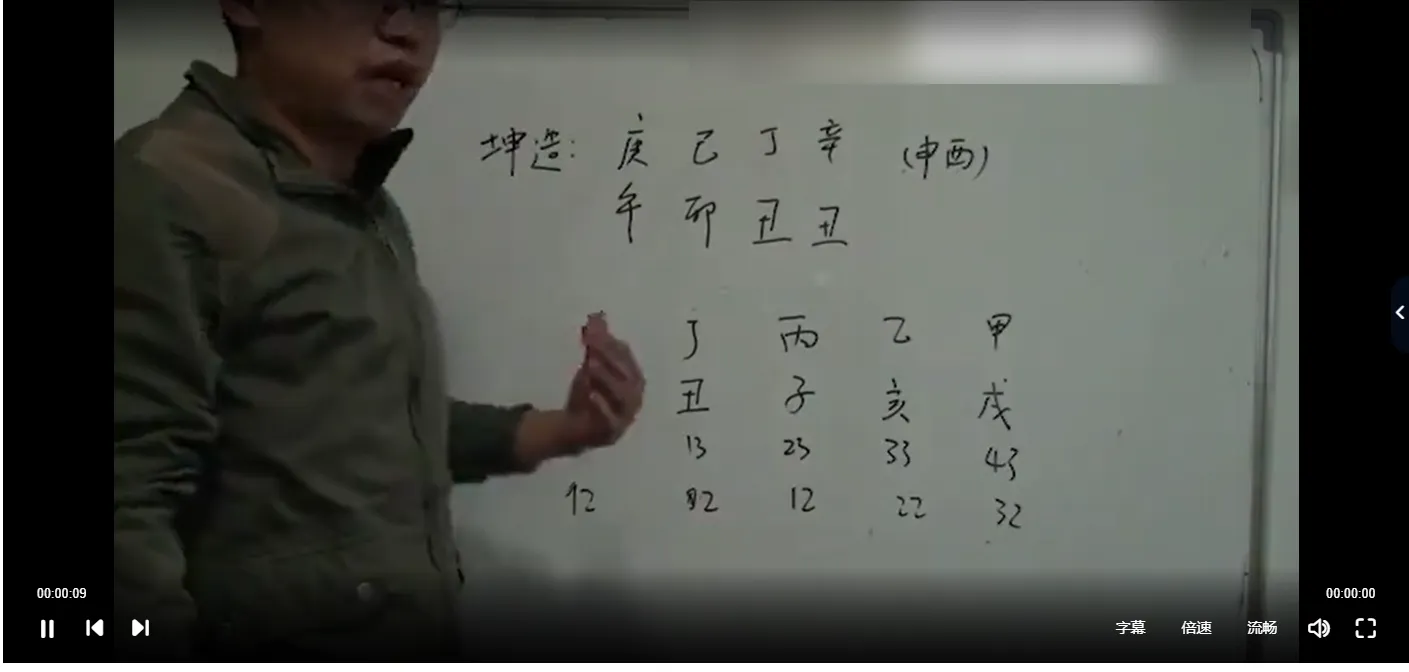 坤造: 庚 己 丁 辛 (申酉)
午 卯 丑 丑
丁 丙 乙 甲
丑 子 亥 戌
13 23 33 43
92 02 12 22 32
00:00:09
00:00:00
字幕 倍速 流畅